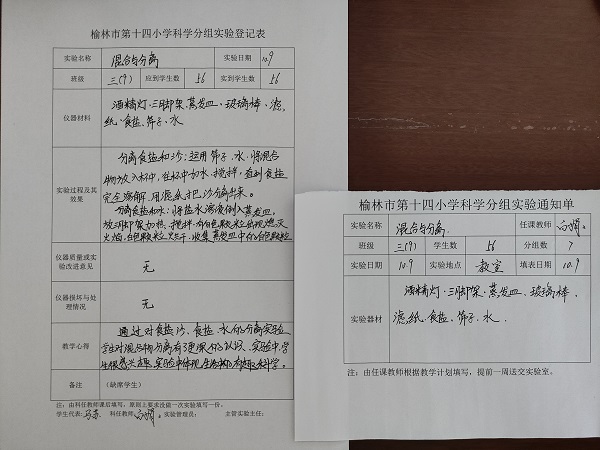 榆林市第十四小学科学分组实验登记表
实验名称 混合与分离 实验日期 10.9
班级 三(9) 应到学生数 56 实到学生数 56
仪器材料
酒精灯·三脚架·蒸发皿、玻璃棒、滤
纸·食盐、筛子、水
实验过程及其
效果
分离食盐和沙:运用筛子、水·将混合
物放入杯中,在杯中加水,搅拌,直到食盐
完全溶解,用滤纸把沙分离出来。
分离食盐和水:将盐水溶液倒入蒸发皿,
放三脚架加热、搅拌,有白色颗粒出现熄灭
火焰,白色颗粒,收集蒸发皿中的白色颗粒
仪器质量或实
验改进意见
无
仪器损坏与处
理情况
无
教学心得
通过对食盐沙、食盐水的分离实验
学生对混合物分离有了更深的认识、实验中,学
生很感兴趣,实验中体现科学。
备注 (缺席学生)
注:由科任教师课后填写,原则上要求没做一次实验填写一份。
学生代表: 科任教师: 实验管理员: 主管实验主任:
榆林市第十四小学科学分组实验通知单
实验名称 混合与分离 任课教师
班级 三(9) 学生数 56 分组数 7
实验日期 10.9 实验地点 教室 填表日期 10.9
实验器材
酒精灯·三脚架·蒸发皿、玻璃棒、
滤纸·食盐、筛子、水
注:由任课教师根据教学计划填写,提前一周送交实验室。